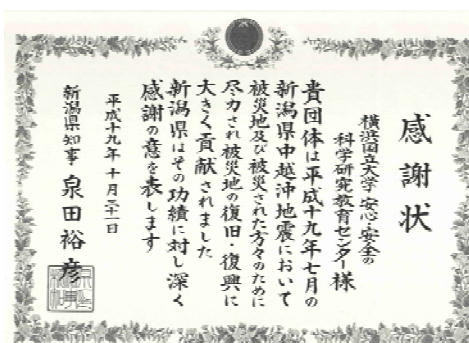 感謝状
横浜国立大学 安心・安全の
科学研究教育センター様
貴団体は平成十九年七月の
新潟県中越沖地震において
被災地及び被災された方々のために
尽力され被災地の復旧・復興に
大きく貢献されました
新潟県はその功績に対し深く
感謝の意を表します
平成十九年十月三十一日
新潟県知事 泉田裕彦